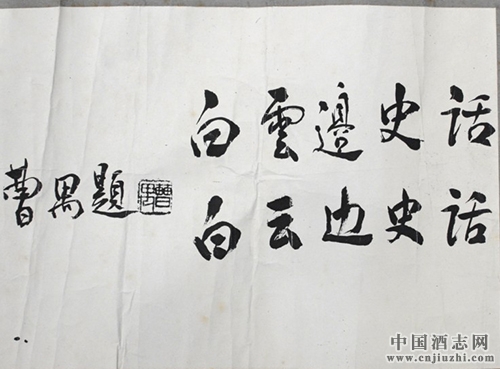 白雲邊史话
白云边史话
曹禺题
曹禺
中国酒志网
www.cnjiuzhi.com